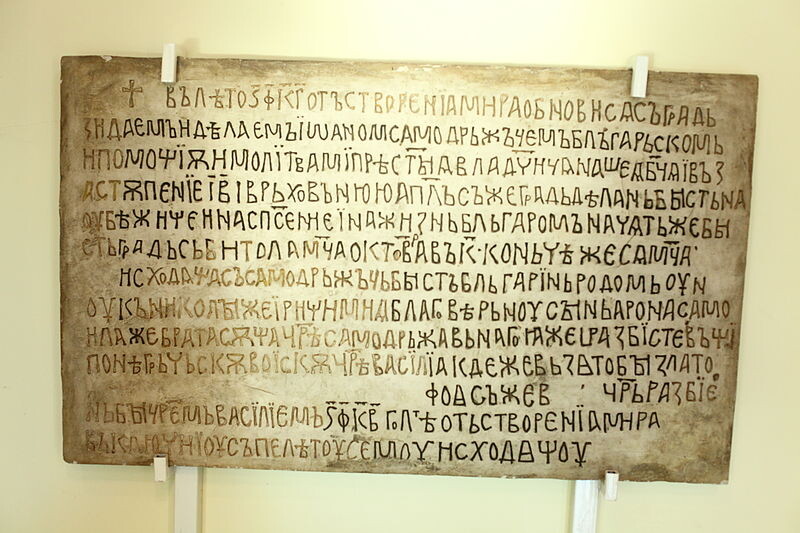 † ВЪ ЛѢТО Ѕ҃Ф҃К҃Г҃ ОТЪ СТВОРЕНЇА МИРА ОБНОВИ СѦ СЪ ГРАДЬ
ЗИДАЕМЪ И ДѢЛАЕМЪ ЇѠАНОМ САМОДРЬЖЪЧЕМЪ БЛЪГАРЬСКОМЬ
И ПОМОЩЇѪ И МОЛИТВАМІ ПРѢСТ҃ЫѦ ВЛАД҃ЧИЦѦ НАШЕѦ Б҃ЧѦ Ї ВЪЗ
ѦСТѪПЕНЇЕ І҃В І ВРЬХОВЪНЮЮ АП҃ЛЪ СЪ ЖЕ ГРАДЬ ДѢЛАНЪ БЫСТЬ НА
ОУБѢЖИЩЕ И НА СП҃СЕНИЕ Ї НА ЖИЗНЬ БЛЬГАРОМЪ НАЧѦТЬ ЖЕ БЫ
СТЬ ГРАДЬ СЬ БИТОЛѢ М҃ЦА ОКТОВРА ВЪ К҃ КОНЬЧѢ ЖЕ СѦ М҃ЦА
ИСХОДѦЩА СЪ САМОДРЬЖЪЦЬ БЫСТЪ БЛЪГАРЇНЬ РОДОМЬ ОУН
ОУКЪ НИКОЛЫ ЖЕ Ї РИѰИМИѦ БЛАГОВѢРЬНОУ СЫНЬ АРОНА САМО
ИЛА ЖЕ БРАТА СѪЩА ЦР҃Ѣ САМОДРЬЖАВЬНАГО ꙖЖЕ Ї РАЗБЇСТЕ ВЪ ЩЇ
ПОНѢ ГРЬЧЬСКѪ ВОЇСКѪ ЦР҃Ѣ ВАСЇЛЇА КДЕ ЖЕ ВЬЗѦТО БЫ ЗЛАТО
ФОѦ СЪЖЕВ ЦР҃Ь РАЗБЇЕ
НЪ БЫ ЦР҃ЕМЬ ВАСЇЛІЕМЬ Ѕ҃Ф҃К҃В ОТЬ СТВОРЕНЇѦ МИРА
ОУСЪПЕ ЛѢТОУ СЕМОУ ИСХОДѦЩОУ